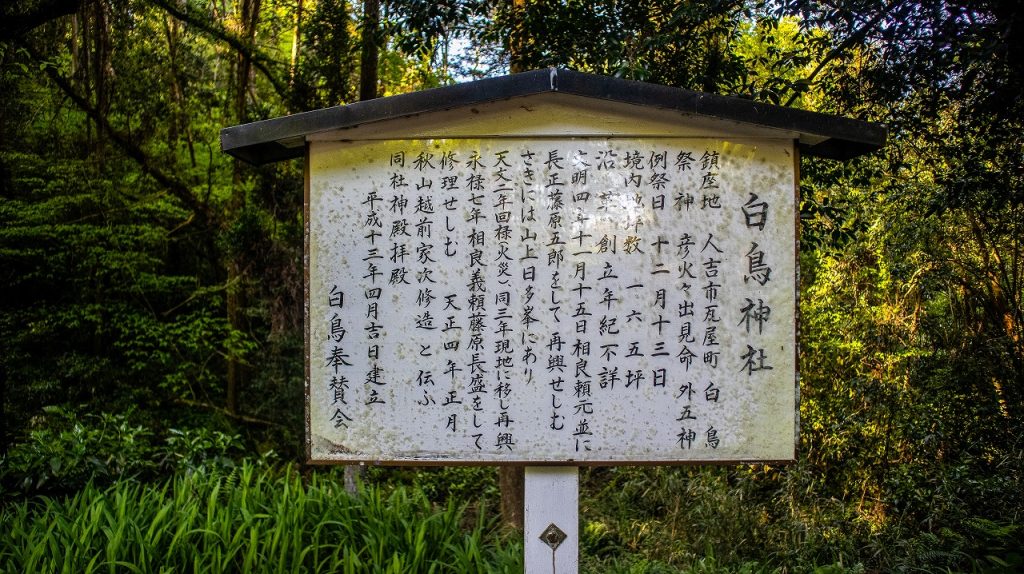 白鳥神社
鎮座地 人吉市瓦屋町 白鳥
祭神 彦火々出見命 外五神
例祭日 十二月十三日
境内地坪数 一六五坪
沿革 創立年紀不詳
文明四年十一月十五日相良頼元並に
長正藤原五郎をして再興せしむ
さきには山上日多峯にあり
天文二年回禄(火災)、同三年現地に移し再興
永禄七年相良義頼藤原長盛をして
修理せしむ 天正四年正月
秋山越前家次修造と伝ふ
同社神殿拝殿
平成十三年四月吉日建立
白鳥奉賛会